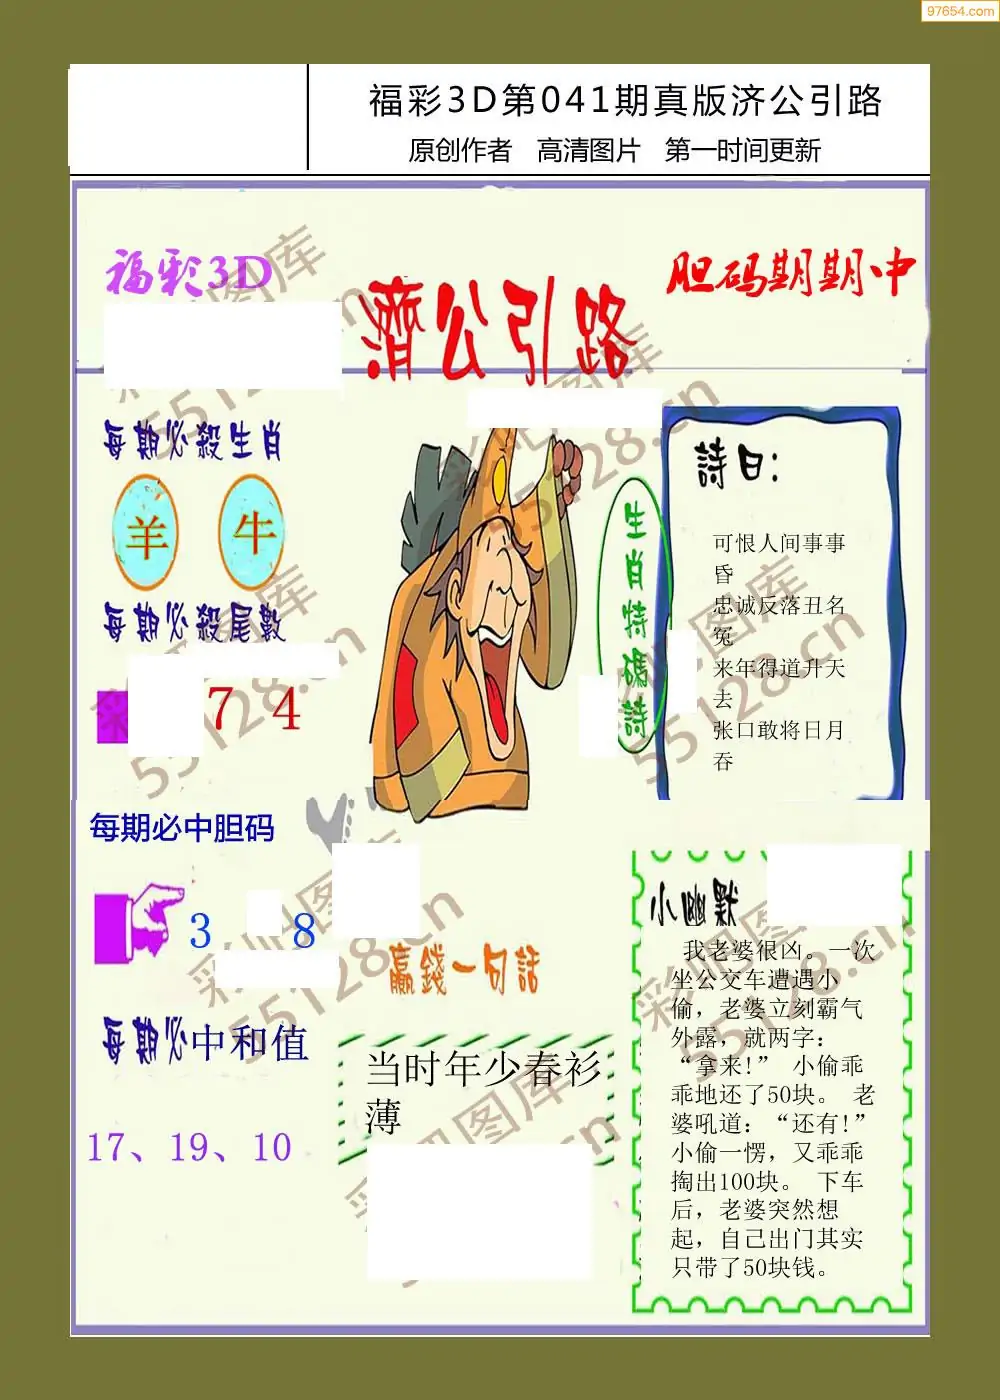 97654.com
福彩3D第041期真版济公引路
原创作者 高清图片 第一时间更新
福彩3D
濟公引路
胆码期期中
每期必殺生肖
羊 牛
每期必殺尾數
7 4
每期必中胆码
3 8
每期必中和值
17、19、10
生肖特碼詩
詩曰：
可恨人间事事
昏
忠诚反落丑名
冤
来年得道升天
去
张口敢将日月
吞
贏錢一句話
当时年少春衫
薄
小幽默
我老婆很凶。 一次
坐公交车遭遇小
偷，老婆立刻霸气
外露，就两字：
“拿来!” 小偷乖
乖地还了50块。 老
婆吼道：“还有!”
小偷一愣，又乖乖
掏出100块。 下车
后，老婆突然想
起，自己出门其实
只带了50块钱。
彩吧图库
55128.cn